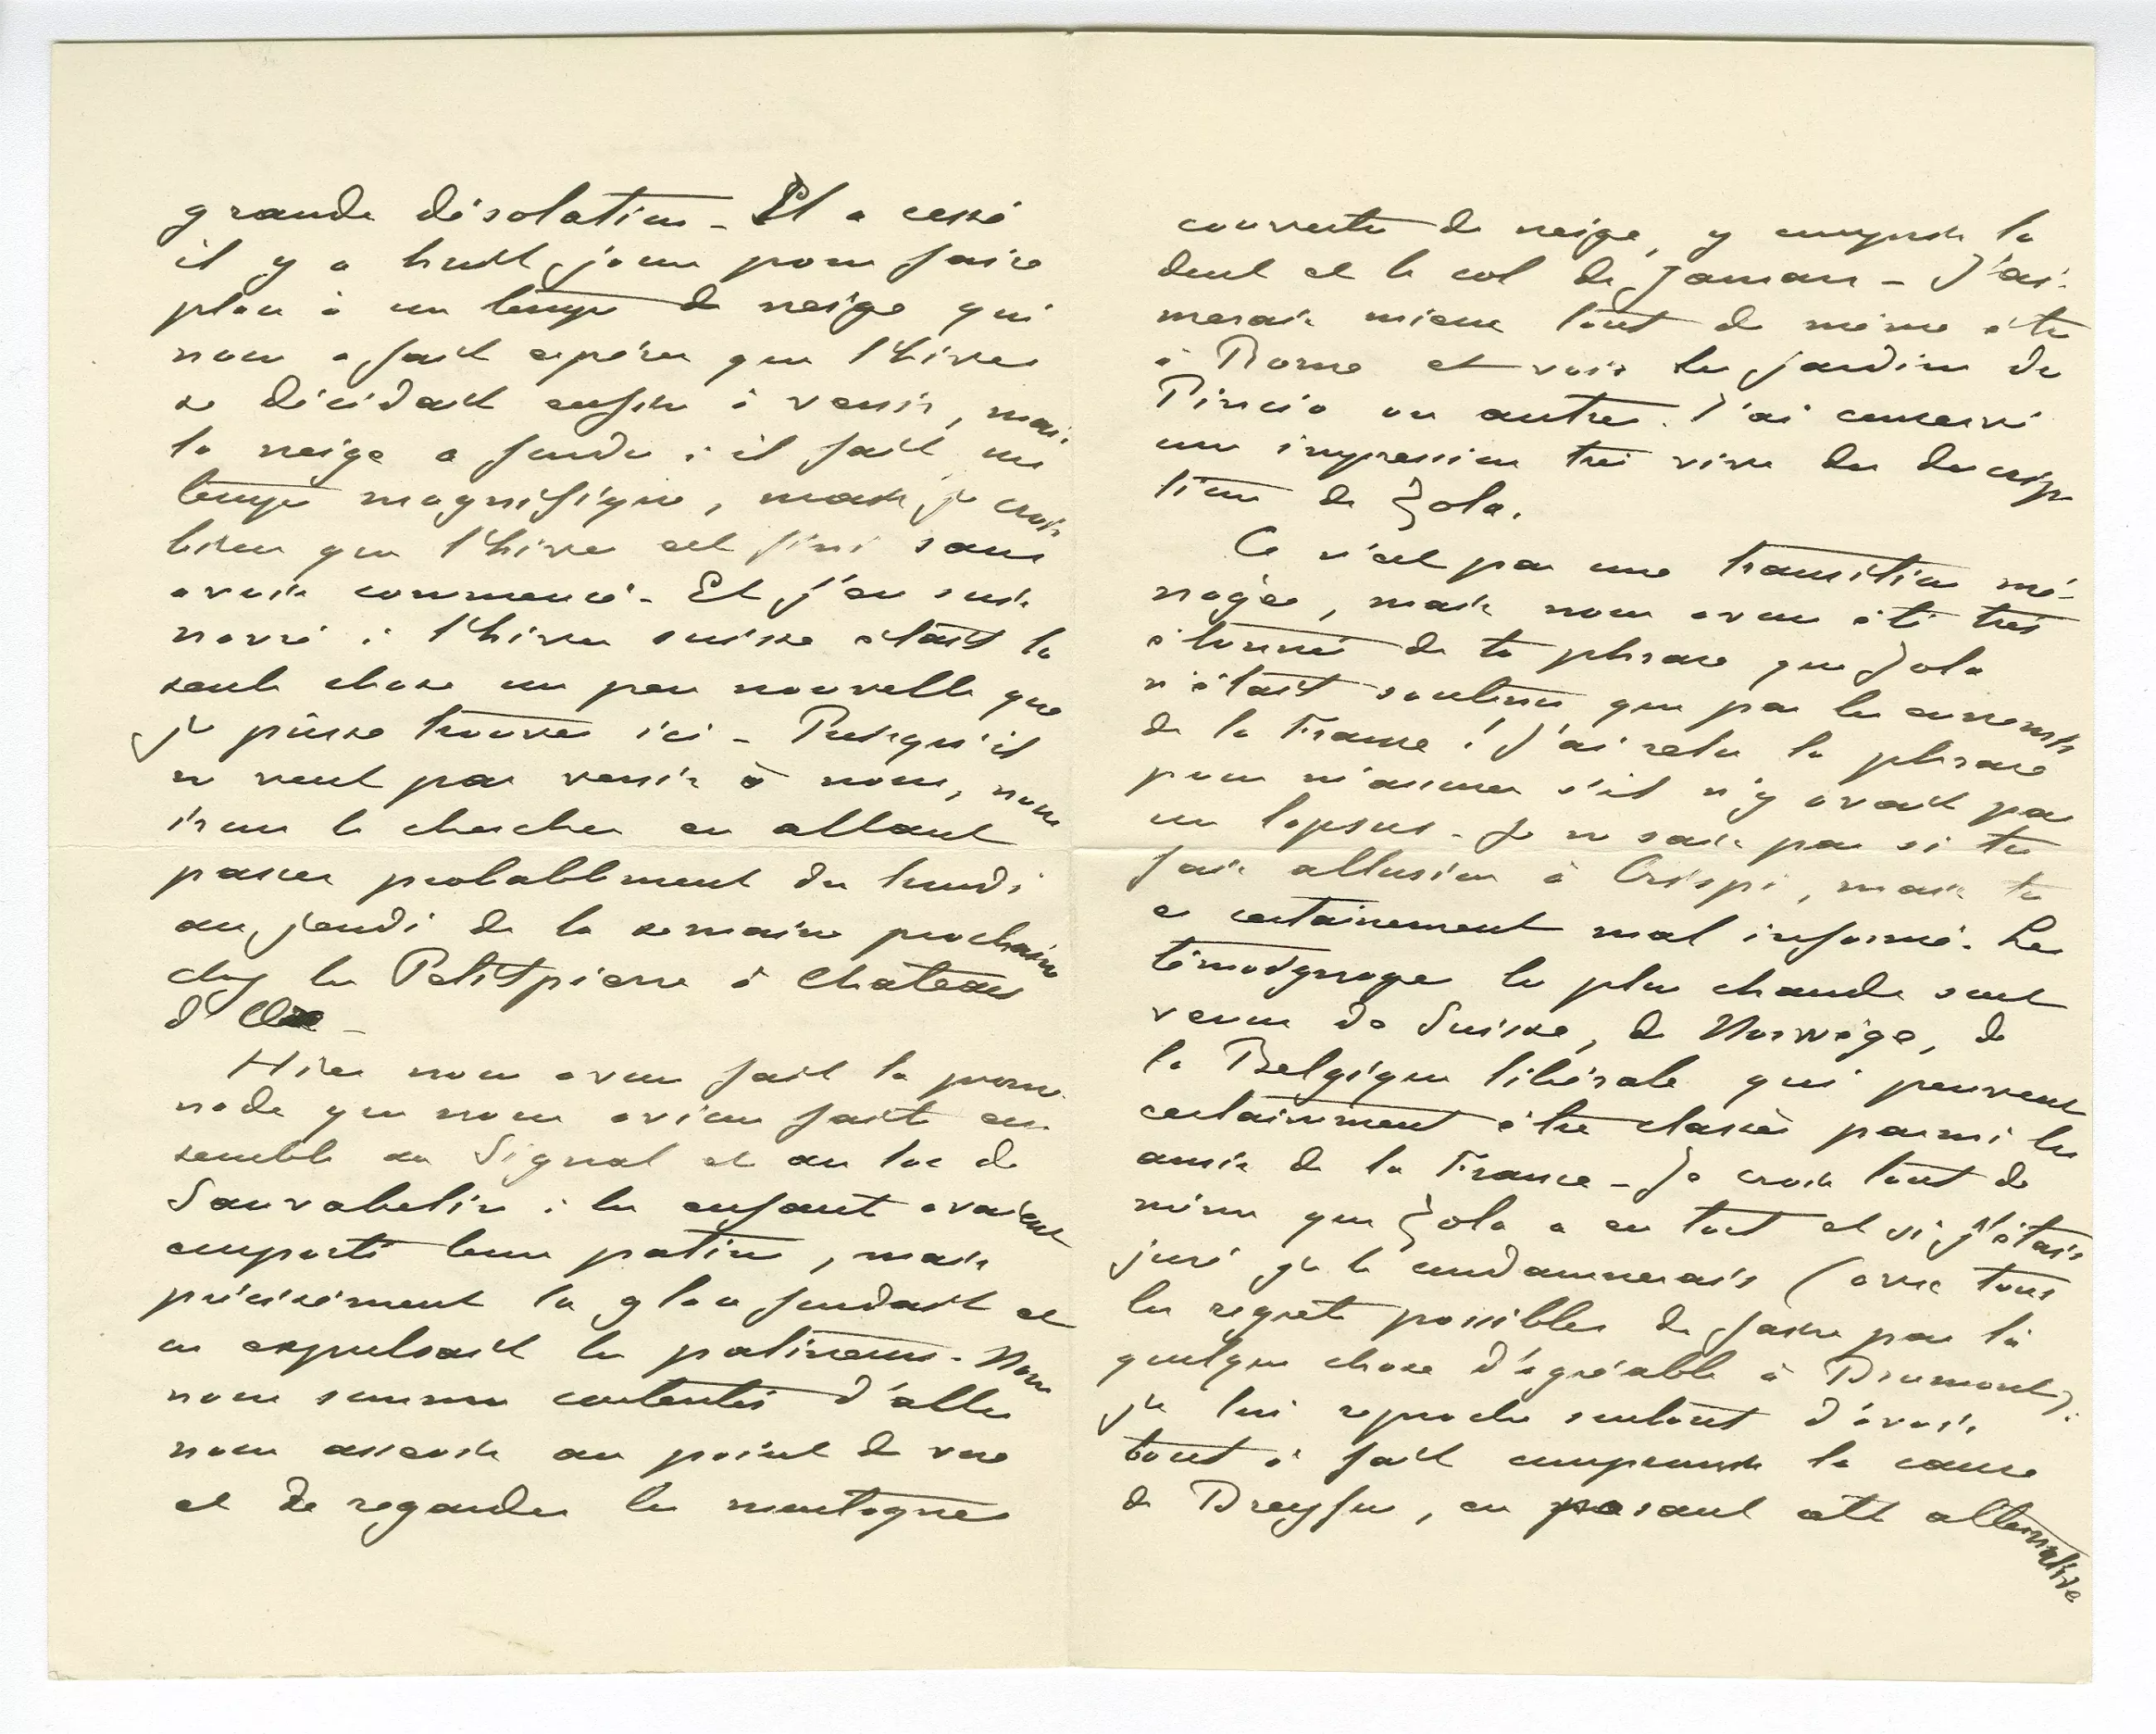 grande désolation - Il a cessé
il y a huit jours pour faire
place à un temps de neige qui
nous a fait espérer que l'hiver
se décidait enfin à venir, mais
la neige a fondu : il fait un
temps magnifique, mais je crois
bien que l'hiver est fini sans
avoir commencé - Et j'en suis
navré : l'hiver suisse était la
seule chose un peu nouvelle que
je puisse trouver ici - Puisqu'il
ne veut pas venir à nous, nous
irons le chercher en allant
passer probablement du lundi
au jeudi de la semaine prochaine
chez les Petitpierre à Chateau
d'Oex -
Hier nous avons fait la prome-
nade que nous avions faite en-
semble au Signal et au lac de
Sauvabelin : les enfants avaient
emporté leurs patins, mais
précisément la glace fondait et
on expulsait les patineurs - Nous
nous sommes contentés d'aller
nous asseoir au point de vue
et de regarder les montagnes
couvertes de neige, y compris la
dent et le col de Jaman - J'ai-
merais mieux tout de même être
à Rome et voir les jardins du
Pincio ou autres. J'ai conservé
une impression très vive des descrip
tions de Zola.
Ce n'est pas une transition mé-
nagée, mais nous avons été très
étonnés de ta phrase que Zola
n'était soutenu que par les ennemis
de la France ! J'ai relu la phrase
pour m'assurer s'il n'y avait pas
un lapsus - Je ne sais pas si tu
fais allusion à Crispi, mais tu
es certainement mal informé. Les
témoignages les plus chauds sont
venus de Suisse, de Norwège, de
la Belgique libérale qui peuvent
certainement être classés parmi les
amis de la France - Je crois tout de
même que Zola a eu tort et si j'étais
juré je le condamnerais (avec tous
les regrets possibles de faire par là
quelque chose d'agréable à Drumont).
Je lui reproche surtout d'avoir
tout à fait compromis la cause
de Dreyfus, en posant cette alternative